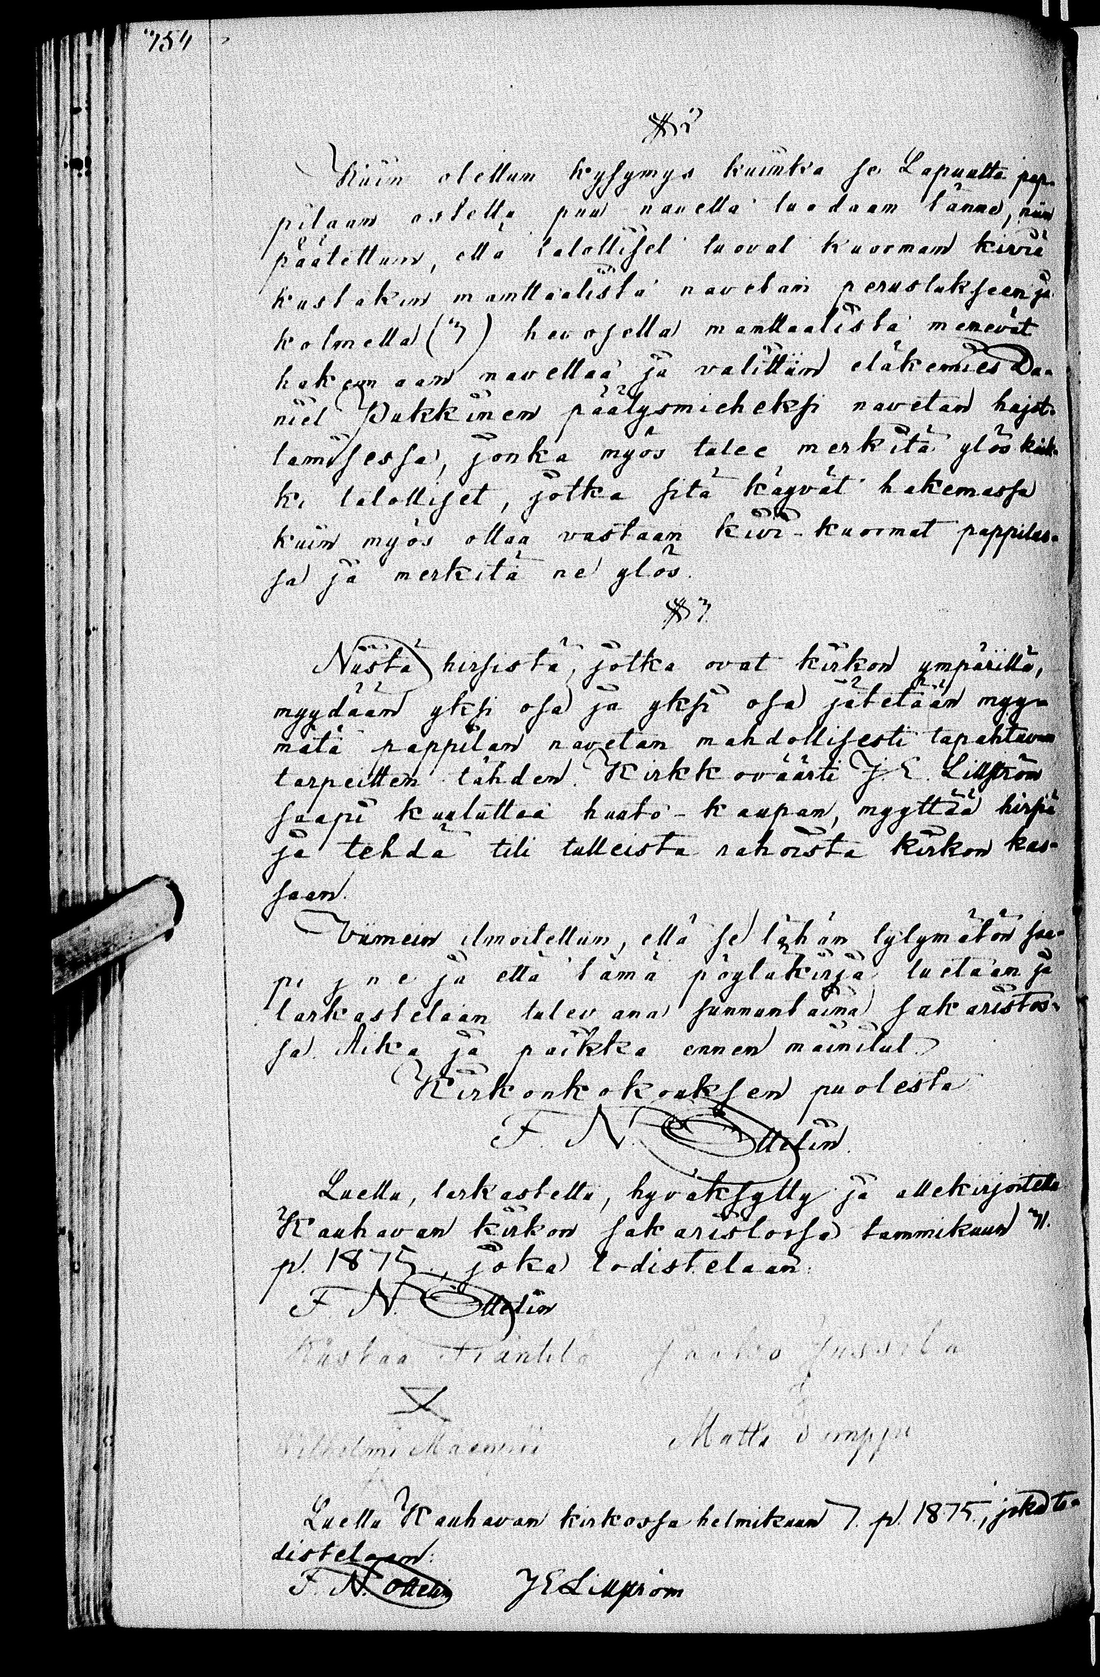 754
§ 2
Kuin otettun kysymys kuinka se Lapualta pap-
pilaan ostettu puu navetta tuodaan tänne, niin
päätettiin, että talolliset tuovat kuorman kiviä
kustakin manttaalista navetan perustukseen ja
kolmella (3) hevosella manttaalista menevät
hakemaan navettaa ja valittiin eläkemies Da-
niel Pukkinen päälysmieheksi navetan hajot-
tamisessa, jonka myös tulee merkitä ylös kaik-
ki talolliset, jotka sitä käyvät hakemassa
kuin myös ottaa vastaan kivi-kuormat pappilas-
sa ja merkitä ne ylös.
§ 3
Niistä hirsistä, jotka ovat kirkon ympärillä,
myydään yksi osa ja yksi osa jätetään myy-
mätä pappilan navetan mahdollisesti tapahtuvan
tarpeitten tähden. Kirkkoväärti J. E. Lillström
saapi kuuluttaa huuto-kaupan, myyttää hirsiä
ja tehdä tili tulleista rahoista kirkon kas-
saan.
Viimein ilmoitettiin, että se tähän tytymätön saa-
pi j n e ja että tämä pöytäkirja luetaan ja
tarkastetaan tulevana sunnuntaina sakaristos-
sa. Aika ja paikka ennen mainitut.
Kirkonkokouksen puolesta
F. N. Ottelin.
Luettu, tarkastettu, hyväksytty ja allekirjoitettu
Kauhavan kirkon sakaristossa tammikuun 31.
p. 1875, joka todistetaan:
F. N. Ottelin
Kustaa Jaakko Jussila
Wilhelmi Matti
Luettu Kauhavan kirkossa helmikuun 7. p. 1875, joka to-
distetaan:
F. N. Ottelin J E Lillström